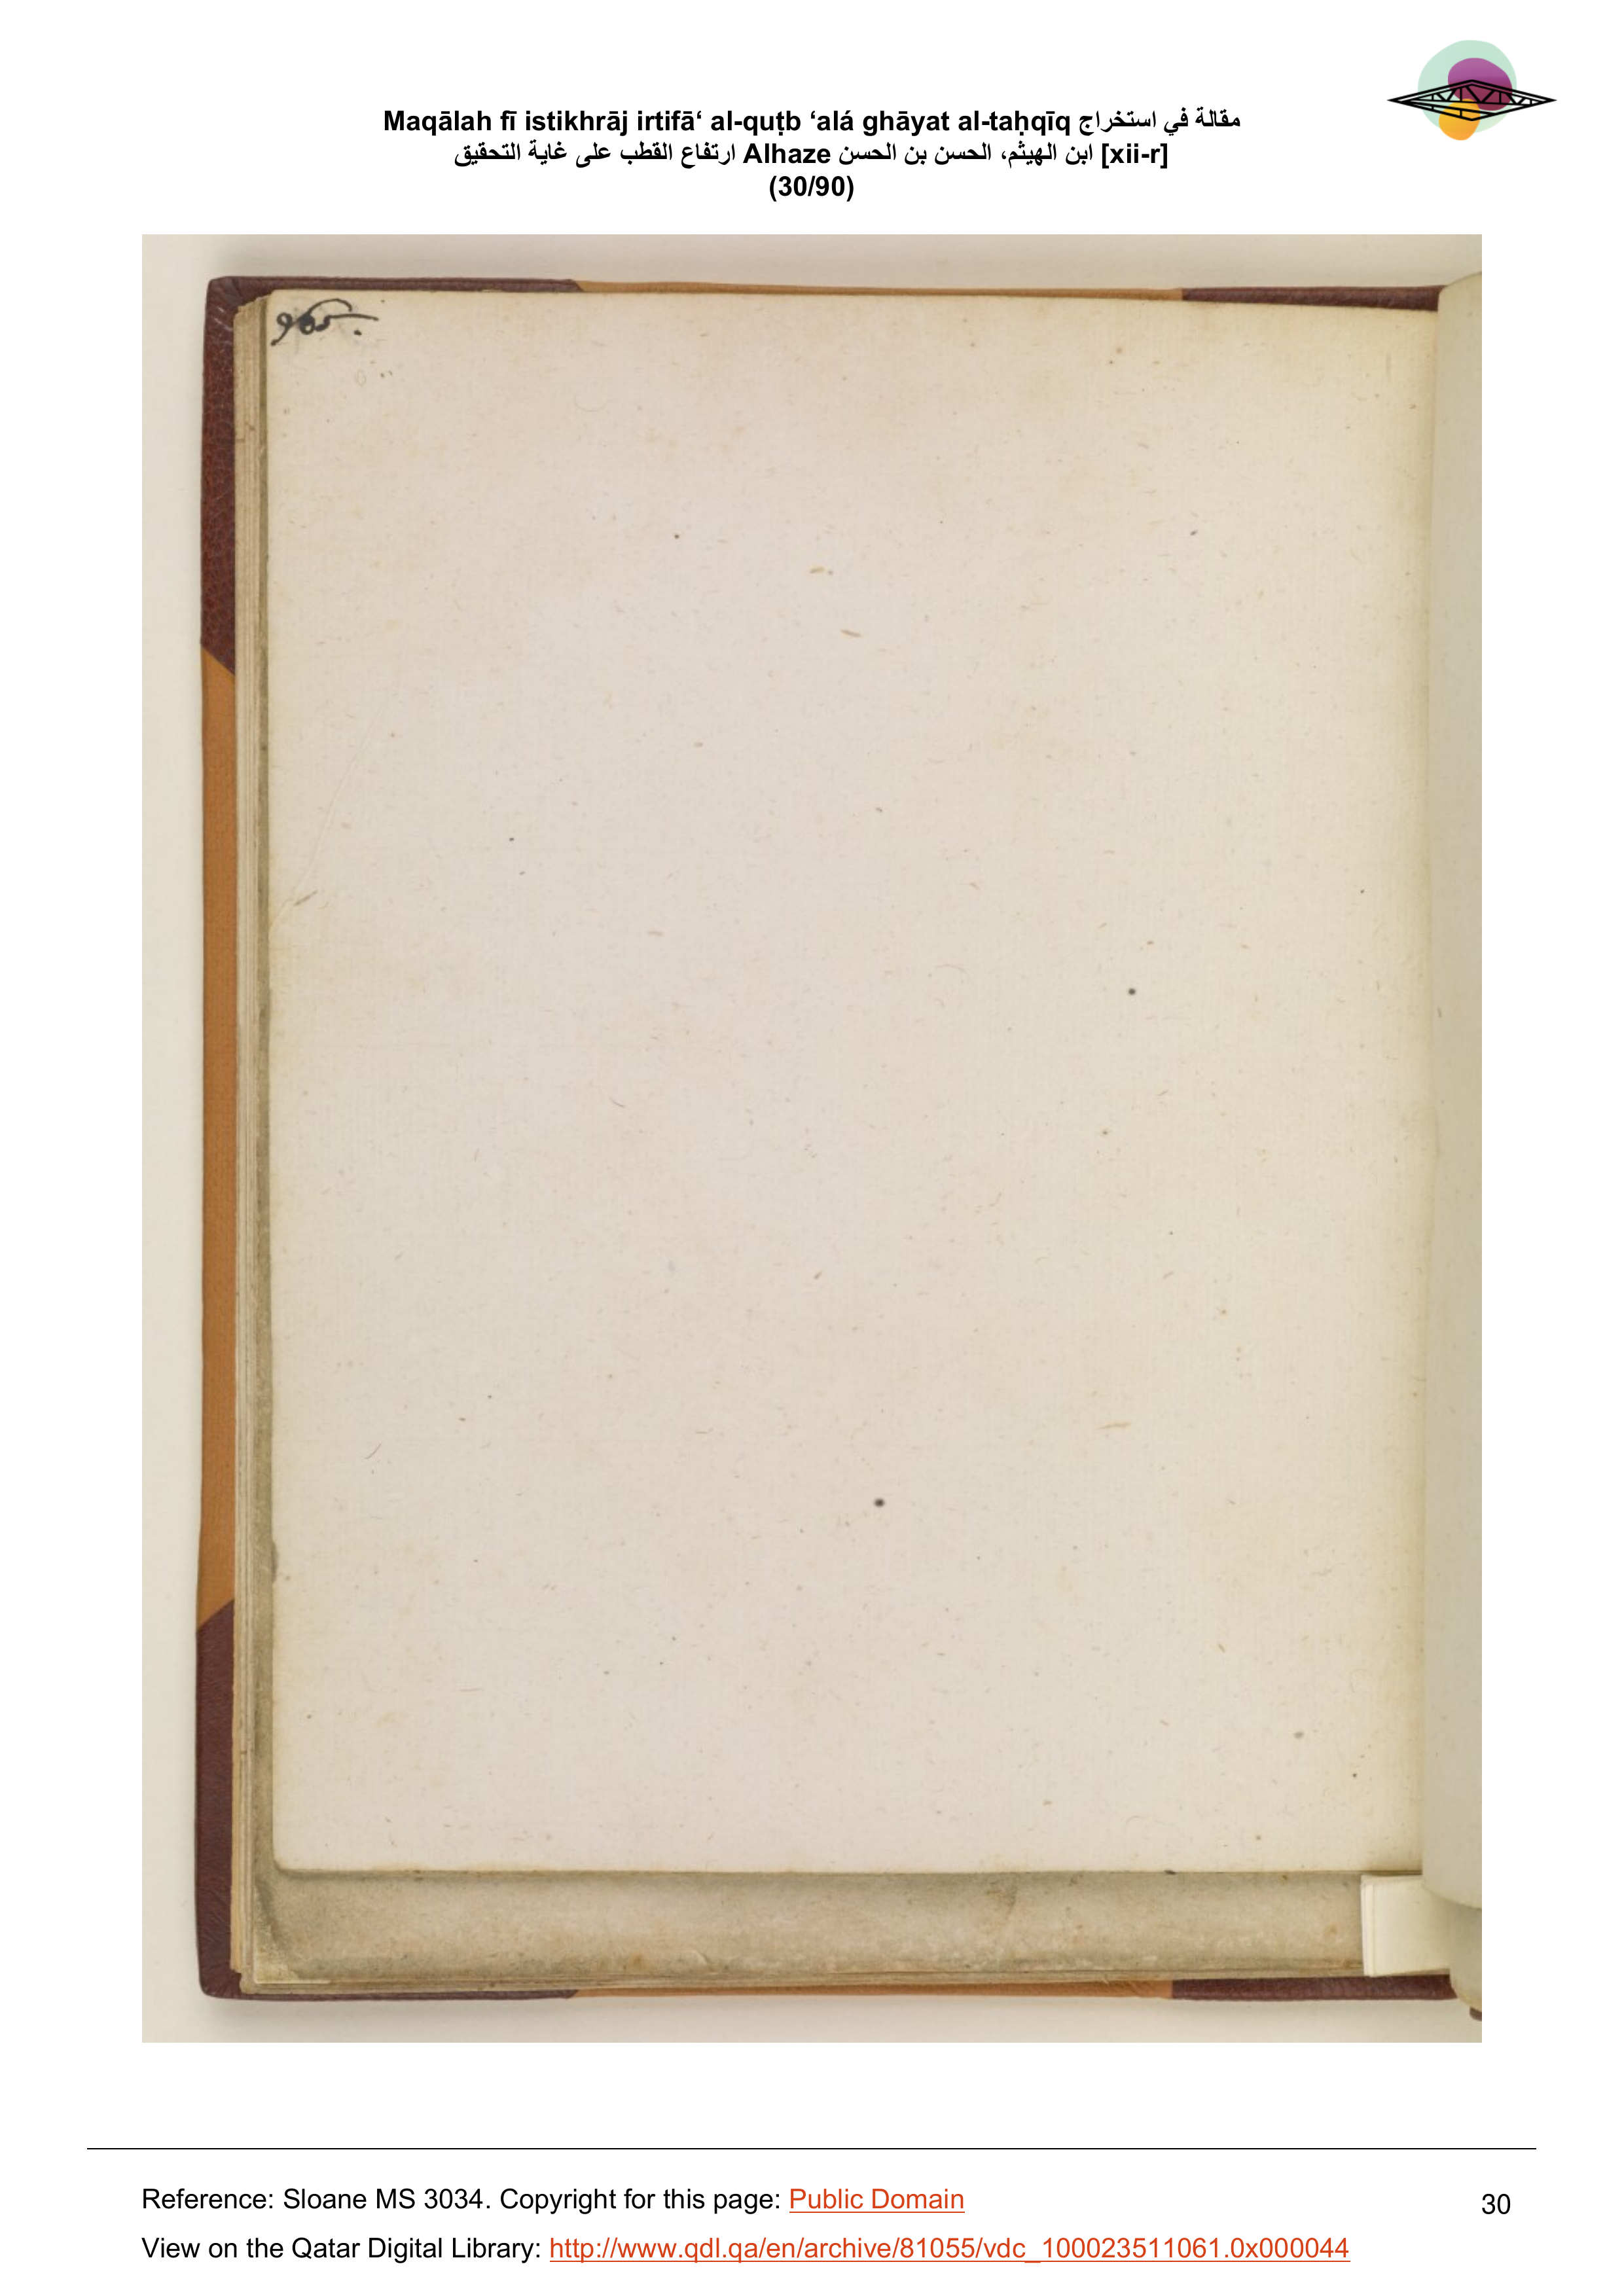 Maqālah fī istikhrāj irtifā‘ al-quṭb ‘alá ghāyat al-taḥqīq مقالة في استخراج
ارتفاع القطب على غاية التحقيق Alhaze ابن الهيثم، الحسن بن الحسن [xii-r]
(30/90)
965.
Reference: Sloane MS 3034. Copyright for this page: Public Domain
30
View on the Qatar Digital Library: http://www.qdl.qa/en/archive/81055/vdc_100023511061.0x000044